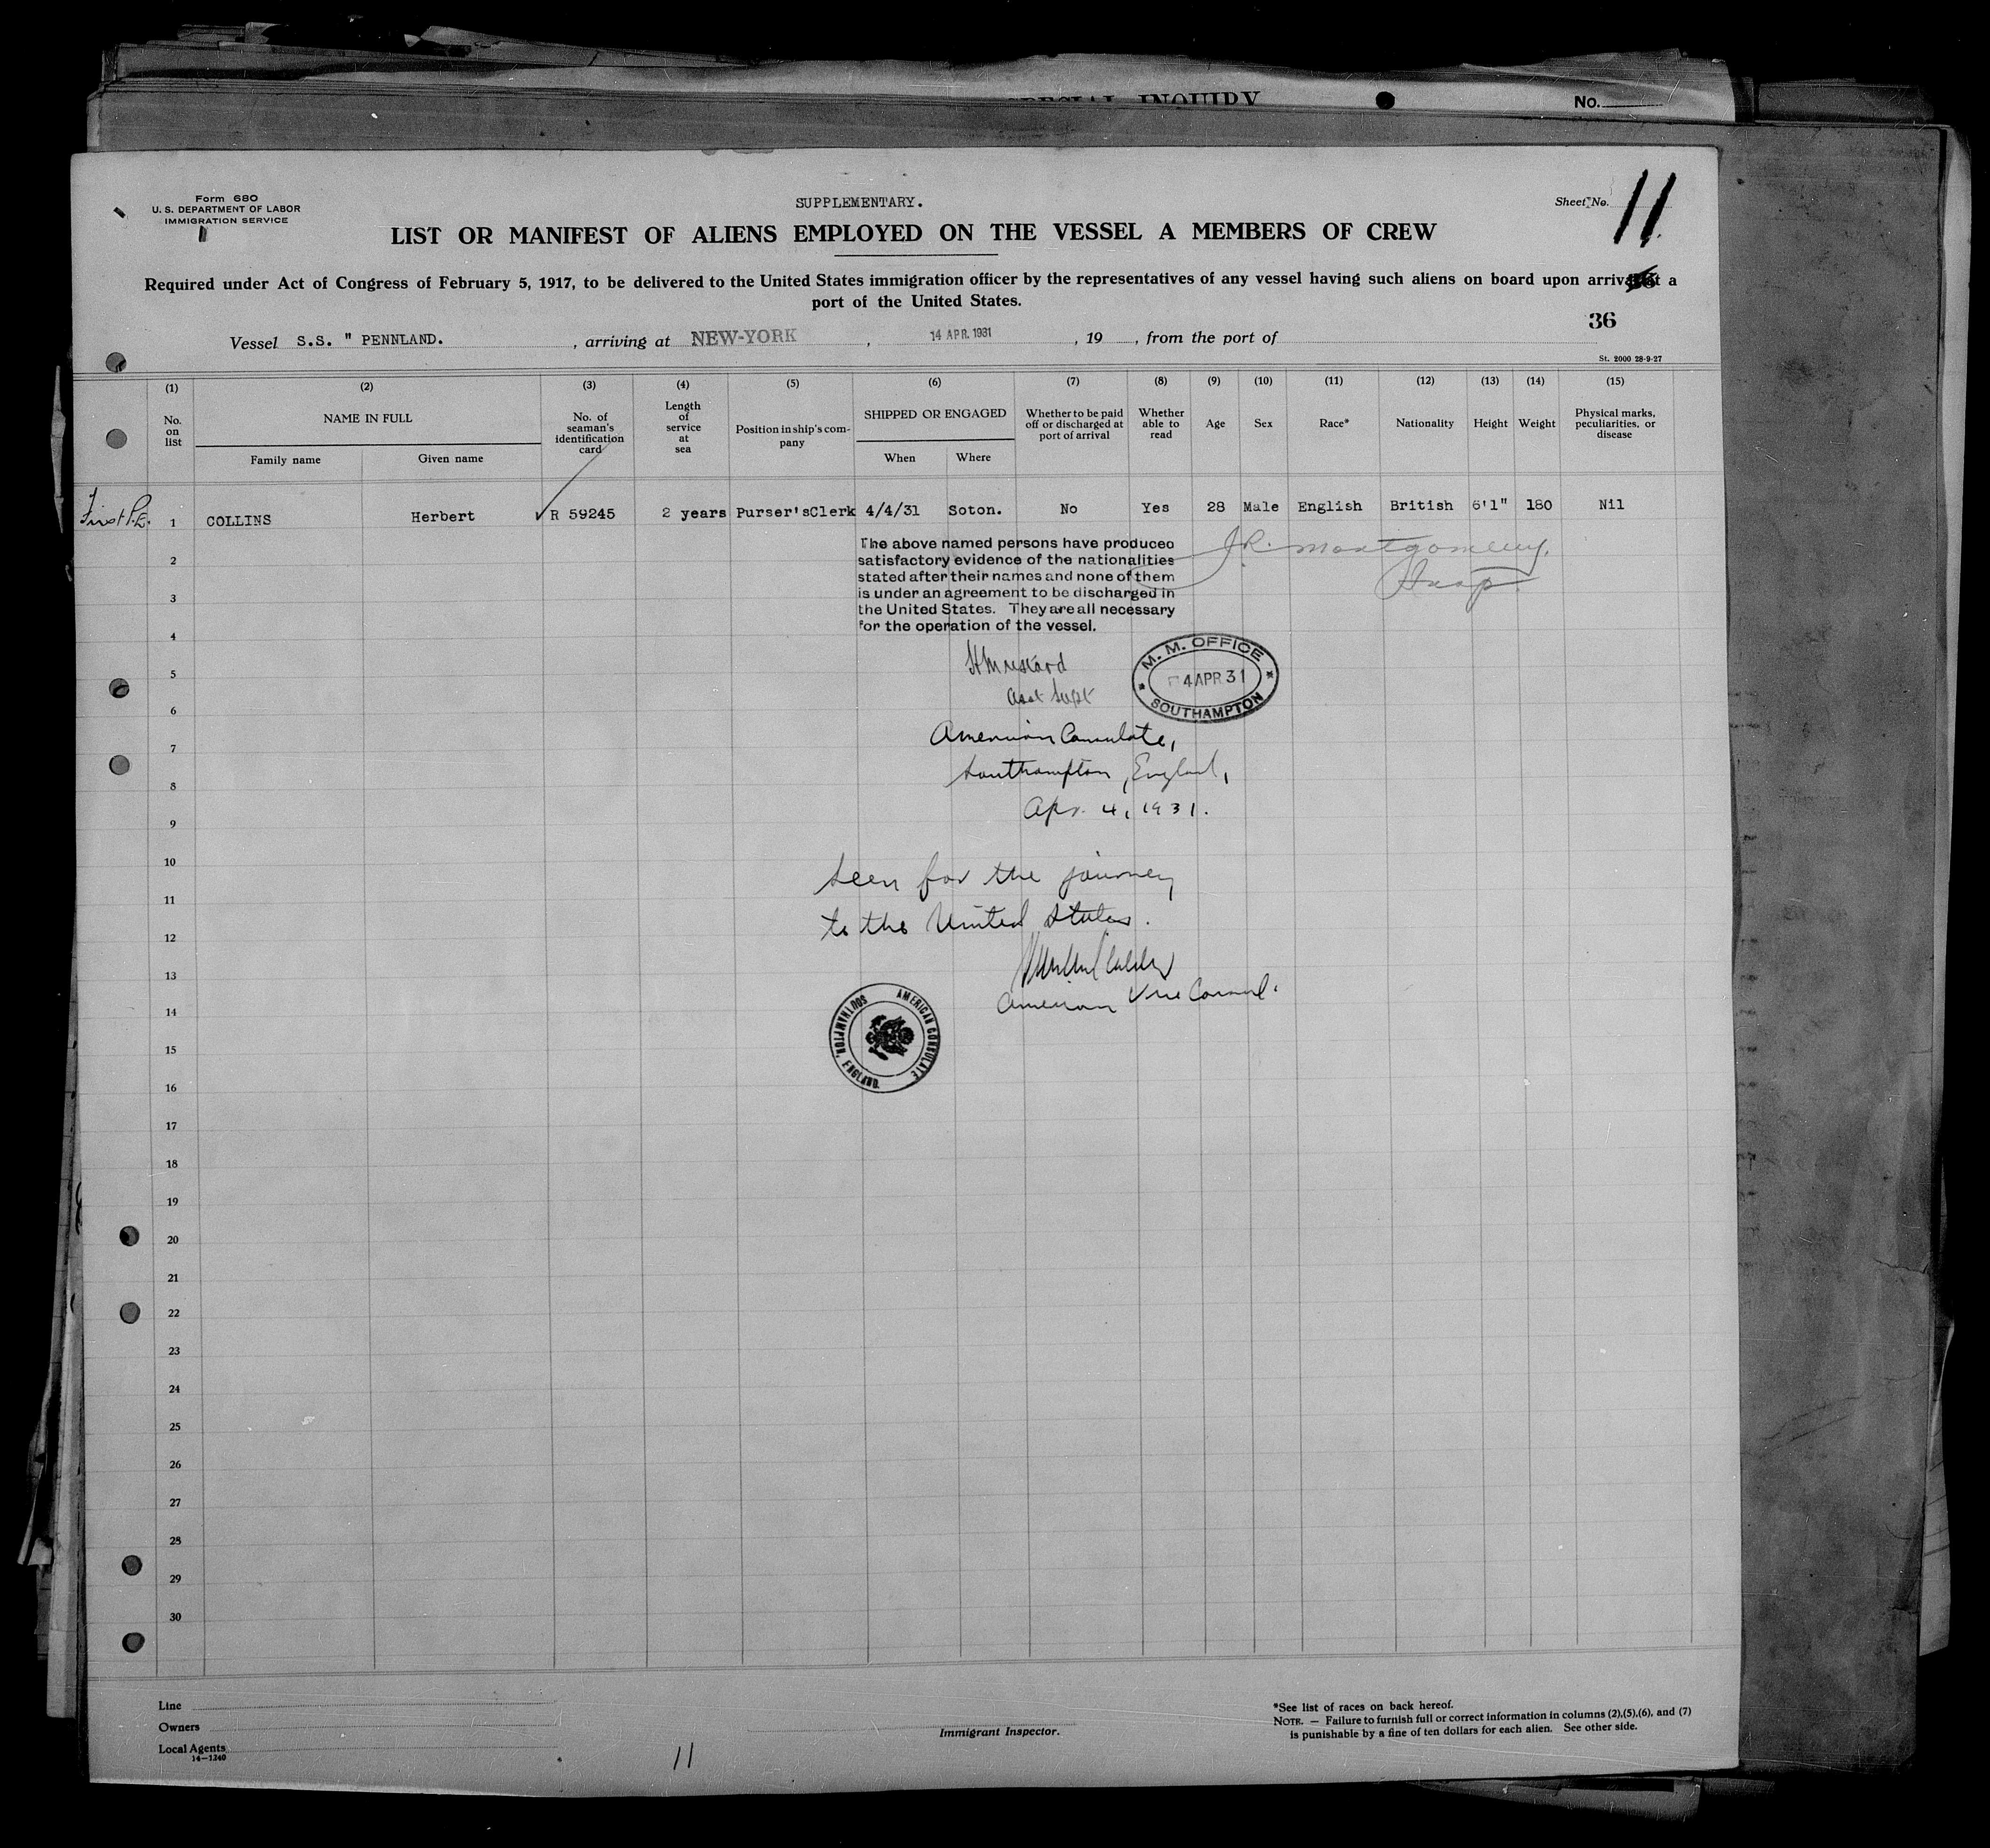 SPECIAL INQUIRY
No.
Form 680
U. S. DEPARTMENT OF LABOR
IMMIGRATION SERVICE
SUPPLEMENTARY.
Sheet No. 11
LIST OR MANIFEST OF ALIENS EMPLOYED ON THE VESSEL A MEMBERS OF CREW
Required under Act of Congress of February 5, 1917, to be delivered to the United States immigration officer by the representatives of any vessel having such aliens on board upon arrival at a
port of the United States.
36
Vessel S.S. " PENNLAND. , arriving at NEW-YORK , 14 APR. 1931 , 19 , from the port of
St. 2000 28-9-27
(1) (2) (3) (4) (5) (6) (7) (8) (9) (10) (11) (12) (13) (14) (15)
No. on list NAME IN FULL Family name Given name No. of seaman's identification card Length of service at sea Position in ship's company SHIPPED OR ENGAGED When Where Whether to be paid off or discharged at port of arrival Whether able to read Age Sex Race* Nationality Height Weight Physical marks, peculiarities, or disease
First P.E. 1 COLLINS Herbert ✓ R 59245 2 years Purser'sClerk 4/4/31 Soton. No Yes 28 Male English British 6'1" 180 Nil
The above named persons have produced
satisfactory evidence of the nationalities
stated after their names and none of them
is under an agreement to be discharged in
the United States. They are all necessary
for the operation of the vessel.
J.R. Montgomery.
Insp.
2
3
4
Asst Supt
M. M. OFFICE
4 APR 31
SOUTHAMPTON
5
6
American Consulate,
7
Southampton, England,
8
Apr. 4, 1931.
9
10
Seen for the journey
11
to the United States.
12
13
American Vice Consul.
14
AMERICAN CONSULATE
SOUTHAMPTON, ENGLAND.
15
16
17
18
19
20
21
22
23
24
25
26
27
28
29
30
Line
Owners
Local Agents
14—1240
11
Immigrant Inspector.
*See list of races on back hereof.
NOTE. — Failure to furnish full or correct information in columns (2),(5),(6), and (7)
is punishable by a fine of ten dollars for each alien. See other side.